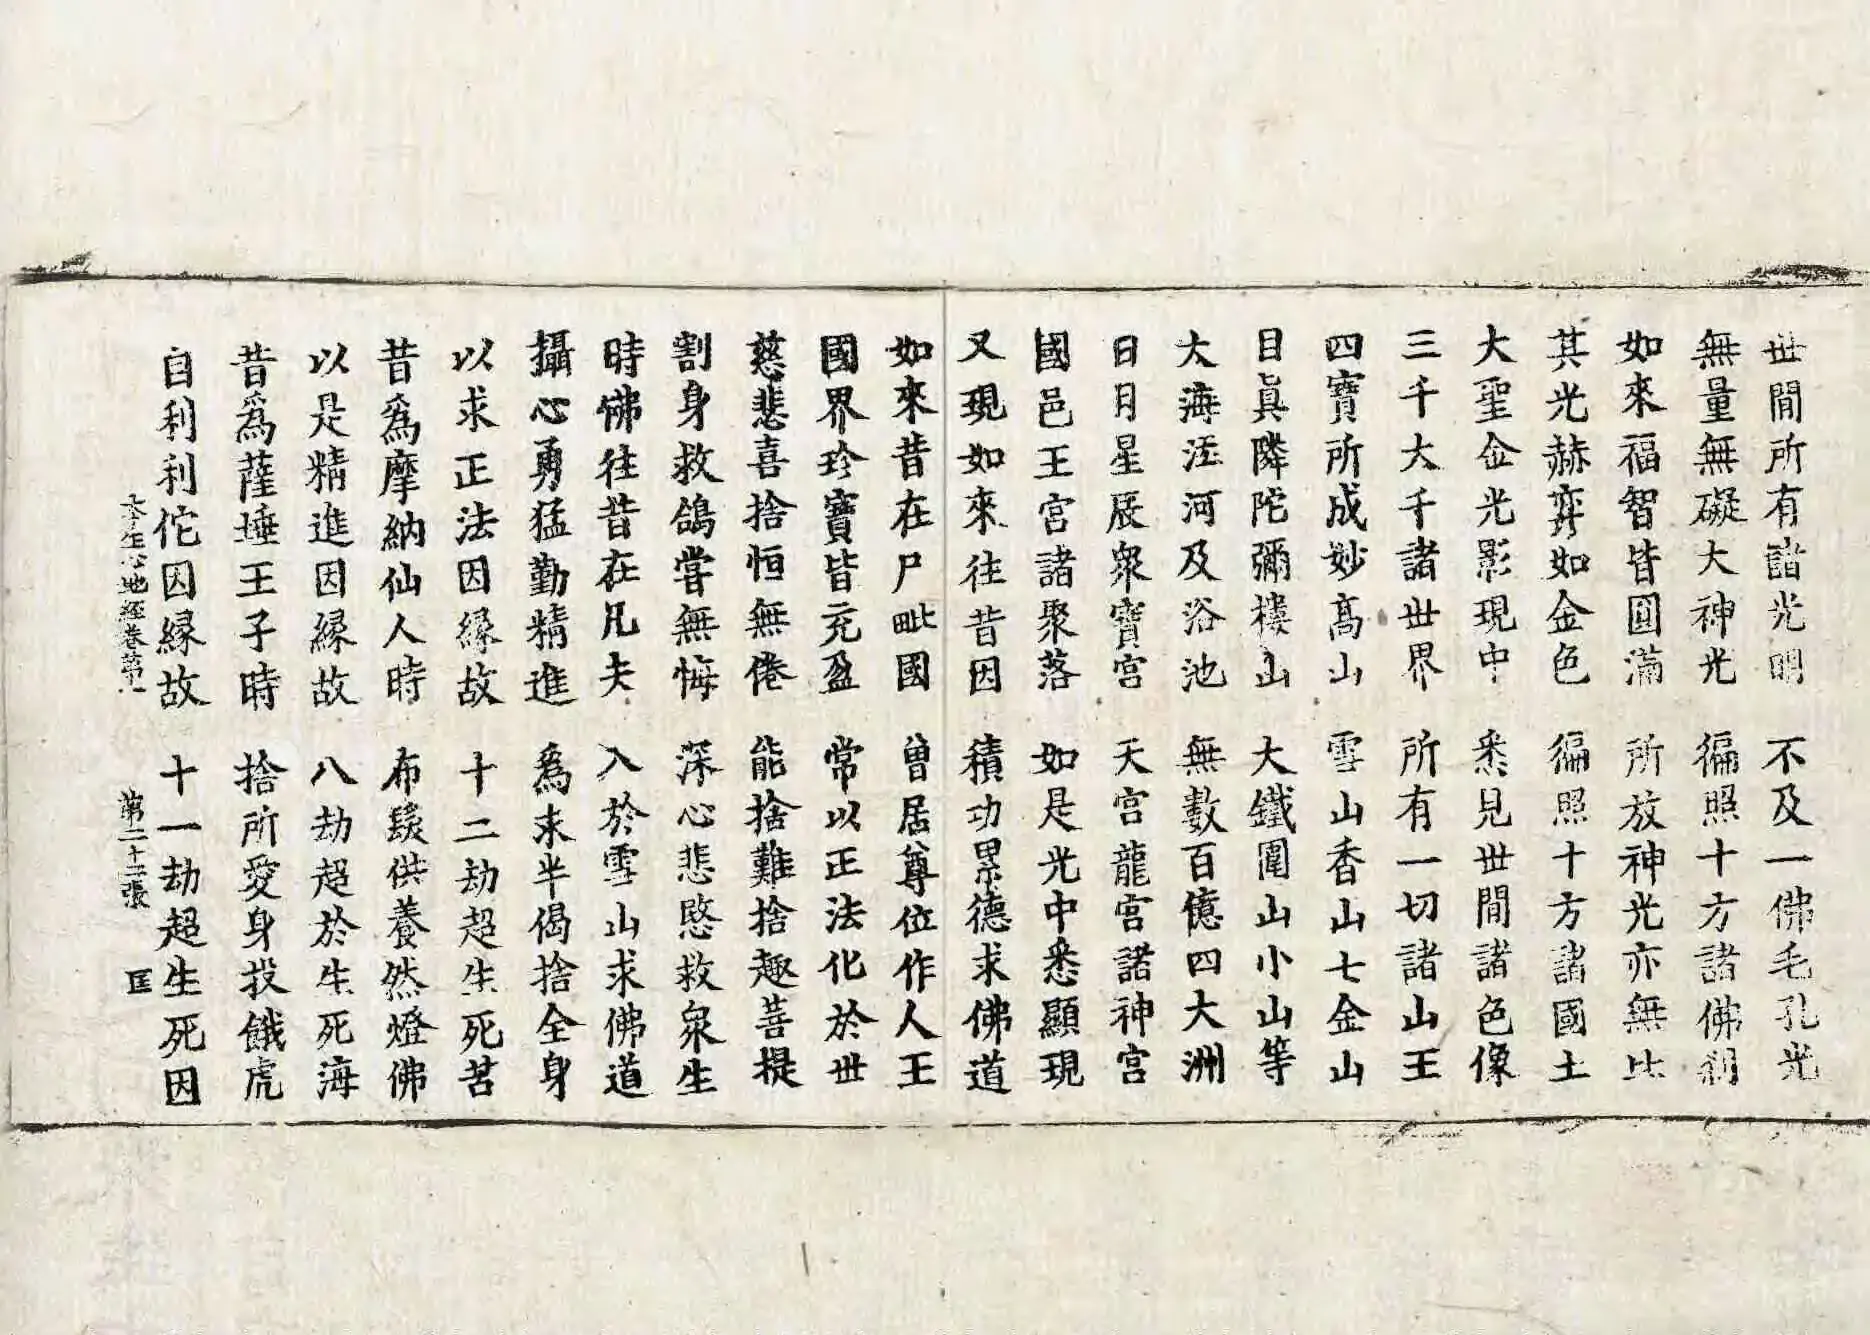 世間所有諸光明　不及一佛毛孔光
無量無礙大神光　徧照十方諸佛刹
如來福智皆圓滿　所放神光亦無比
其光赫弈如金色　徧照十方諸國土
大聖金光影現中　悉見世間諸色像
三千大千諸世界　所有一切諸山王
四寶所成妙高山　雪山香山七金山
目眞隣陀彌樓山　大鐵圍山小山等
大海江河及浴池　無數百億四大洲
日月星辰衆寶宮　天宮龍宮諸神宮
國邑王宮諸聚落　如是光中悉顯現
又現如來往昔因　積功累德求佛道
如來昔在尸毗國　曾居尊位作人王
國界珍寶皆充盈　常以正法化於世
慈悲喜捨恒無倦　能捨難捨趣菩提
割身救鴿嘗無悔　深心悲愍救衆生
時佛往昔在凡夫　入於雪山求佛道
攝心勇猛勤精進　爲求半偈捨全身
以求正法因縁故　十二劫超生死苦
昔爲摩納仙人時　布髮供養然燈佛
以是精進因縁故　八劫超於生死海
昔爲薩埵王子時　捨所愛身投餓虎
自利利佗因縁故　十一劫超生死因
本生心地經卷第一　第二十二張　匡